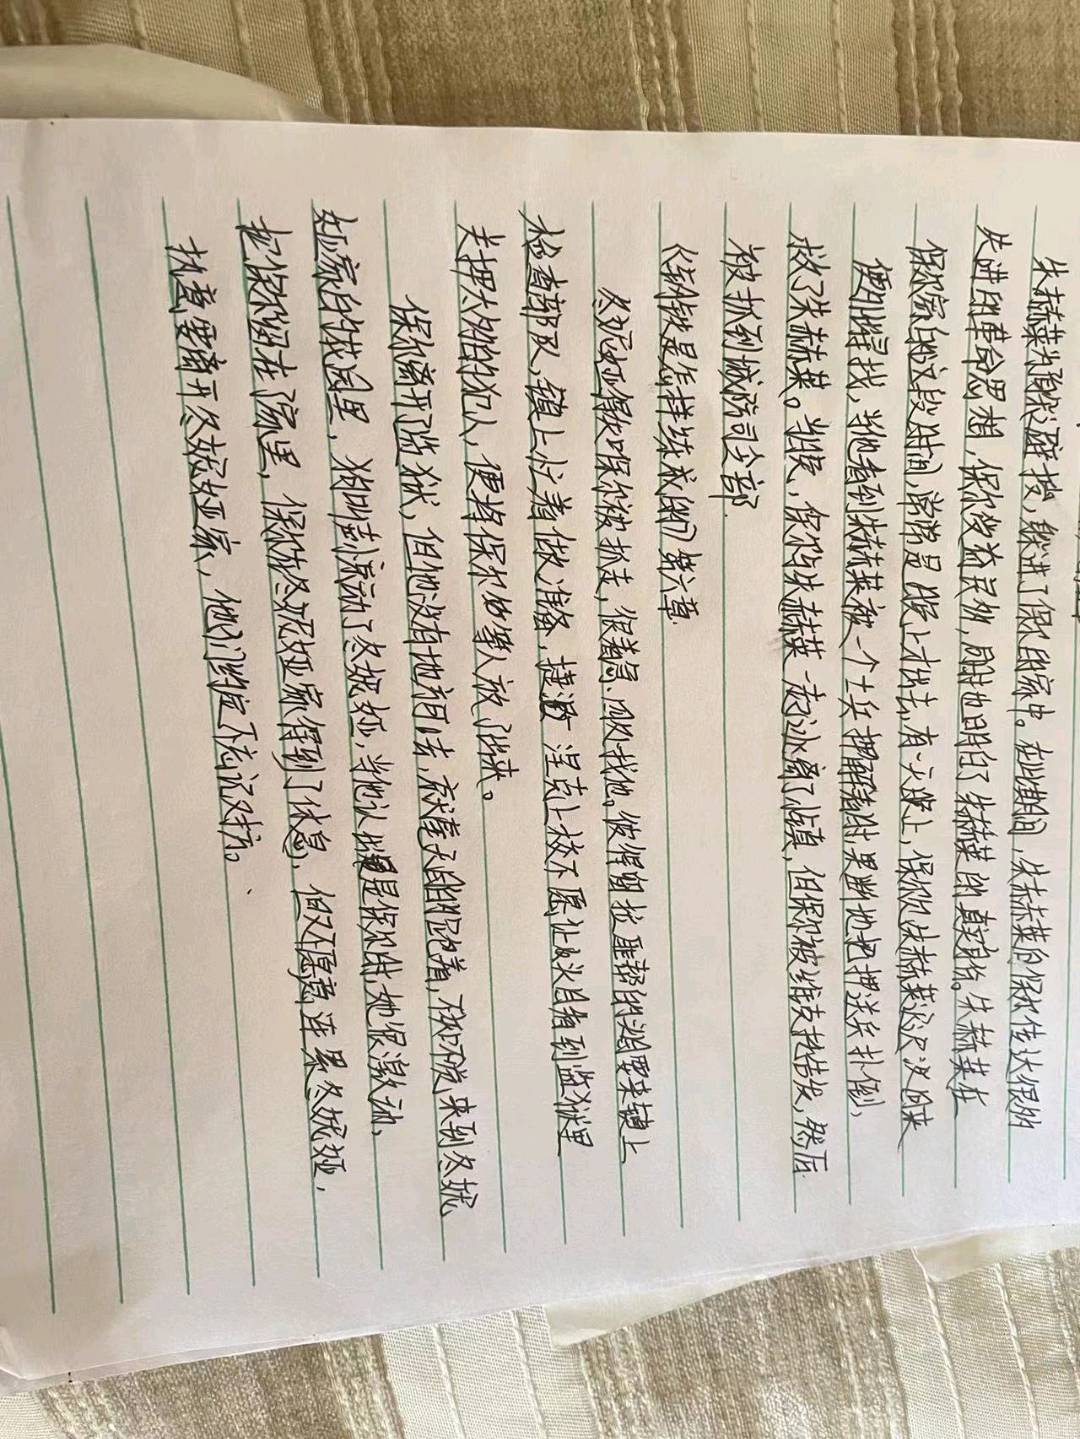 朱赫莱为躲避搜捕，躲进了保尔的家中。在此期间，朱赫莱向保尔传达很多
先进的革命思想，保尔受益匪浅，同时也明白了朱赫莱的真实身份。朱赫莱在
保尔家的这段时间，常常是晚上才出去，有一天晚上，保尔见朱赫莱没回来
便到得找，当他看到朱赫莱被一个士兵押解着时，果断地把押送兵扑倒，
救了朱赫莱。当晚，保尔与朱赫莱一起，但保尔被维克托告发，然后
被抓到城防司令部.
《钢铁是怎样练成的》第六章
冬妮娅得知保尔被抓走，很着急，四处找他。彼得留拉匪帮的头目要来镇上
检查部队，镇上忙着做准备，捷涅克上校不愿让头目看到监狱里
关押太多的犯人，便将保尔他等人放了出来。
保尔离开了监狱，但他没有地方可去，不知不觉，来到冬妮
娅家的花园里，狗叫声惊动了冬妮娅，当她认出是保尔时，她很激动，
把保尔留在了家里，保尔在冬妮娅家得到了休息，但又不愿意连累冬妮娅，
执意要离开冬妮娅家，他们约定不忘记对方。